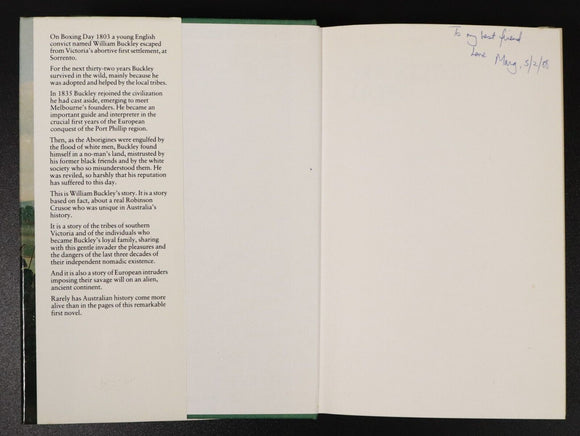 On Boxing Day 1803 a young English
convict named William Buckley escaped
from Victoria's abortive first settlement, at
Sorrento.
For the next thirty-two years Buckley
survived in the wild, mainly because he
was adopted and helped by the local tribes.
In 1835 Buckley rejoined the civilization
he had cast aside, emerging to meet
Melbourne's founders. He became an
important guide and interpreter in the
crucial first years of the European
conquest of the Port Phillip region.
Then, as the Aborigines were engulfed by
the flood of white men, Buckley found
himself in a no-man's land, mistrusted by
his former black friends and by the white
society who so misunderstood them. He
was reviled, so harshly that his reputation
has suffered to this day.
This is William Buckley's story. It is a story
based on fact, about a real Robinson
Crusoe who was unique in Australia's
history.
It is a story of the tribes of southern
Victoria and of the individuals who
became Buckley's loyal family, sharing
with this gentle invader the pleasures and
the dangers of the last three decades of
their independent nomadic existence.
And it is also a story of European intruders
imposing their savage will on an alien,
ancient continent.
Rarely has Australian history come more
alive than in the pages of this remarkable
first novel.
To my best friend
Love Marg, 5/2/08